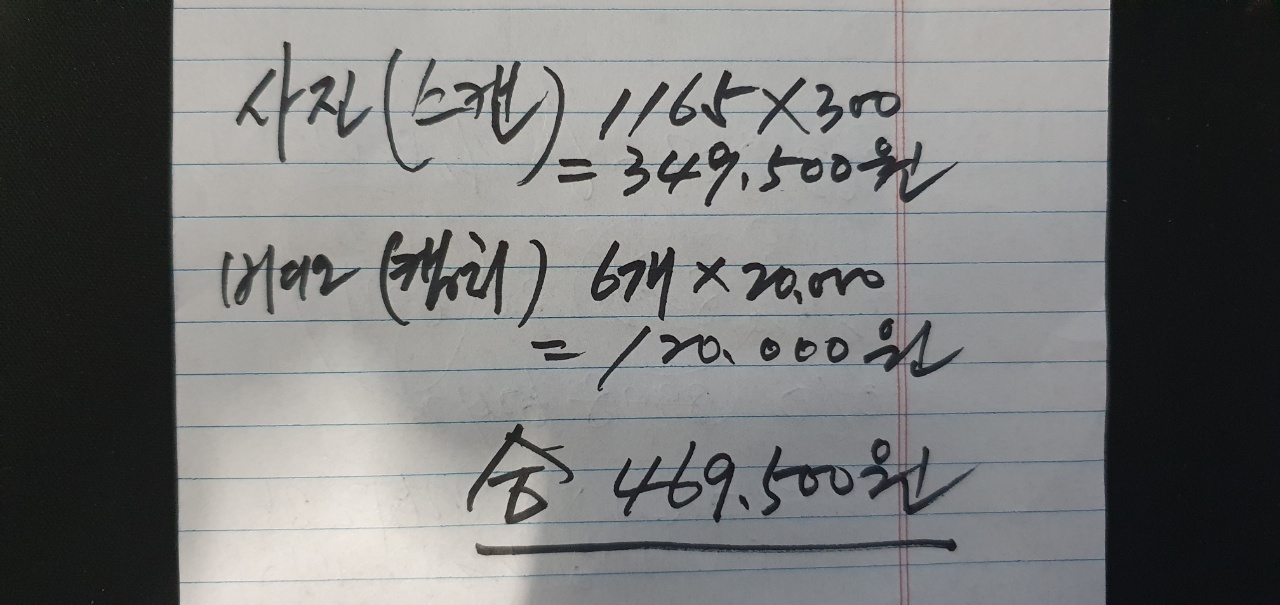 사진(스캔) 1165×300
= 349,500원
비디오(캡쳐) 6개×20,000
= 120,000원
合 469,500원